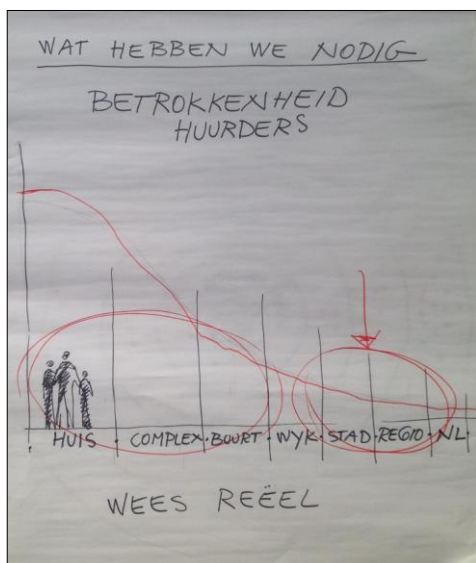 WAT HEBBEN WE NODIG
BETROKKENHEID
HUURDERS
HUIS · COMPLEX · BUURT · WYK · STAD · REGIO · NL ·
WEES REËEL